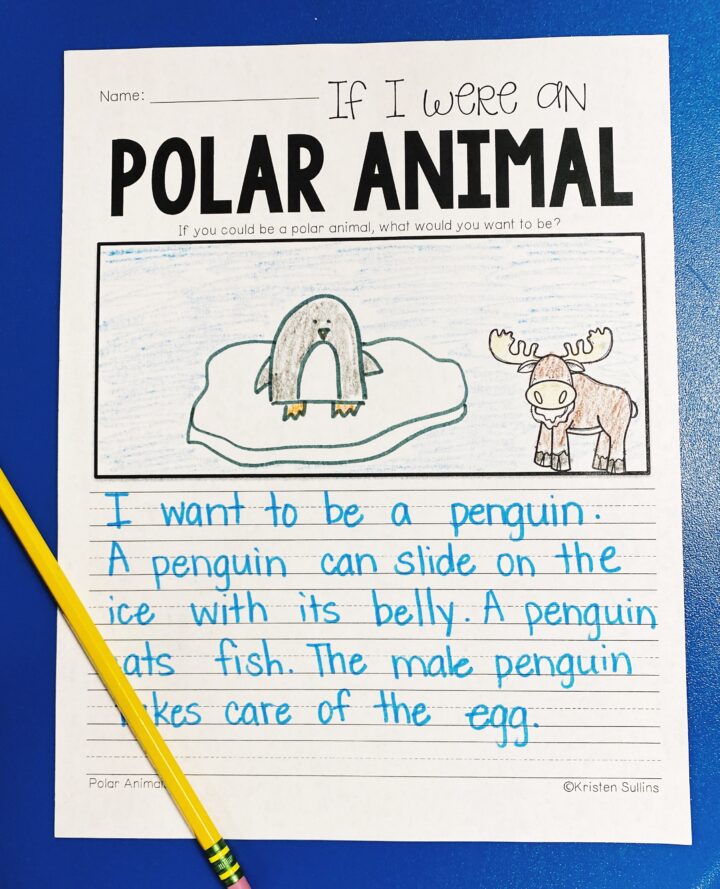 Name:
If I were an
POLAR ANIMAL
If you could be a polar animal, what would you want to be?
I want to be a penguin.
A penguin can slide on the
ice with its belly. A penguin
ats fish. The male penguin
kes care of the egg.
Polar Animal
©Kristen Sullins